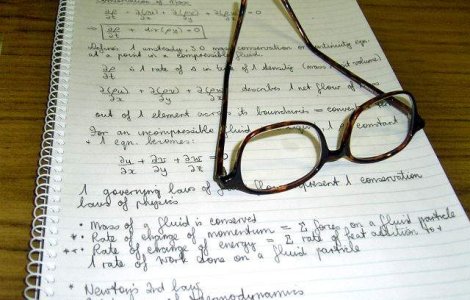 Conservation of Mass
∂ρ/∂t + ∂(ρu)/∂x + ∂(ρv)/∂y + ∂(ρw)/∂z = 0
⇒ ∂ρ/∂t + div(ρu) = 0
Defines 1 unsteady, 3D mass conservation or continuity eqn
at a point in a compressible fluid.
∂ρ/∂t is 1 rate of Δ in t of 1 density (mass per volume)
∂(ρu)/∂x + ∂(ρv)/∂y + ∂(ρw) describes 1 net flow of
out of 1 element across its boundaries =
For an uncompressible fluid 1 constant
+ 1 eqn. becomes:
∂u/∂x + ∂v/∂y + ∂w/∂z = 0
1 governing laws of flow represent 1 conservation
laws of physics
* Mass of a fluid is conserved
** Rate of change of momentum = Σ forces on a fluid particle
*** Rate of change of energy = Σ rate of heat addition to +
1 rate of work done on a fluid particle
* Newton's 2nd law
of thermodynamics